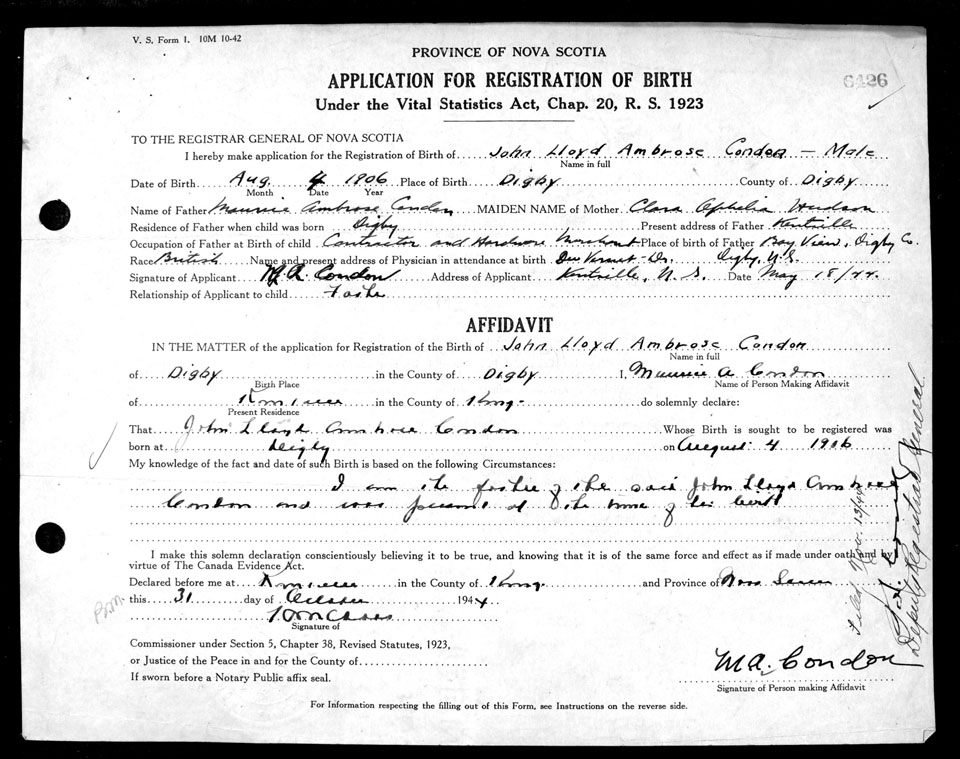 V. S. Form 1. 10M 10-42
PROVINCE OF NOVA SCOTIA
APPLICATION FOR REGISTRATION OF BIRTH
6426
Under the Vital Statistics Act, Chap. 20, R. S. 1923
TO THE REGISTRAR GENERAL OF NOVA SCOTIA
I hereby make application for the Registration of Birth of John Lloyd Ambrose Condon — Male
Name in full
Date of Birth Aug 4 1906 Place of Birth Digby County of Digby
Month Date Year
Name of Father Maurice Ambrose Condon MAIDEN NAME of Mother Clara Ophelia Hudson
Residence of Father when child was born Digby Present address of Father Kentville
Occupation of Father at Birth of child Contractor and Hardware Merchant Place of birth of Father Bay View, Digby Co.
Race British Name and present address of Physician in attendance at birth Digby, N.S.
Signature of Applicant M A Condon Address of Applicant Kentville, N. S. Date May 18/44
Relationship of Applicant to child Father
AFFIDAVIT
IN THE MATTER of the application for Registration of the Birth of John Lloyd Ambrose Condon
Name in full
of Digby in the County of Digby I, Maurice A Condon
Birth Place Name of Person Making Affidavit
of Kentville in the County of Kings do solemnly declare:
Present Residence
That John Lloyd Ambrose Condon Whose Birth is sought to be registered was
born at Digby on August 4 1906
My knowledge of the fact and date of such Birth is based on the following Circumstances:
I am the father of the said John Lloyd Ambrose
Condon and was present at the time of his birth
I make this solemn declaration conscientiously believing it to be true, and knowing that it is of the same force and effect as if made under oath and by
virtue of The Canada Evidence Act.
Declared before me at Kentville in the County of Kings and Province of Nova Scotia
this 31 day of October 1944
Signature of
Commissioner under Section 5, Chapter 38, Revised Statutes, 1923,
or Justice of the Peace in and for the County of
If sworn before a Notary Public affix seal.
M A Condon
Signature of Person making Affidavit
For Information respecting the filling out of this Form, see Instructions on the reverse side.
Filed Nov. 13/44
Deputy Registrar General